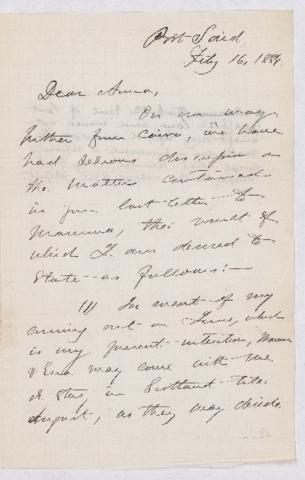 Port Said,
Feby 16, 188
Dear Anna,
On our way
hither from Cairo, we have
had serious discussion on
the matters contained
in your last letter to
Mamma, the result of
which I am desired to
State as follows:—
(1) In event of my
coming out in June, which
is my present intention, Mamma
& may come with me
or Stay in Scotland till
August, as they may decide.